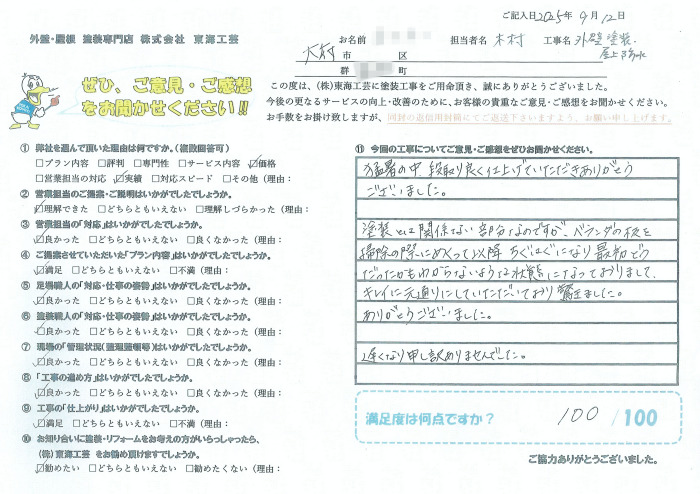 ご記入日2025年9月12日
外壁・屋根 塗装専門店 株式会社 東海工芸
お名前
担当者名 木村 工事名 外壁塗装・屋上防水
大府市 区
群 町
ぜひ、ご意見・ご感想
をお聞かせください!!
この度は、(株)東海工芸に塗装工事をご用命頂き、誠にありがとうございました。
今後の更なるサービスの向上・改善のために、お客様の貴重なご意見・ご感想をお聞かせください。
お手数をお掛け致しますが、同封の返信用封筒にてご返送下さいますよう、お願い申し上げます。
① 弊社を選んで頂いた理由は何ですか。(複数回答可)
□プラン内容 □評判 □専門性 □サービス内容 ☑価格
□営業担当の対応 ☑実績 □対応スピード □その他(理由:
② 営業担当のご提案・ご説明はいかがでしたでしょうか。
☑理解できた □どちらともいえない □理解しづらかった(理由:
③ 営業担当の「対応」はいかがでしたでしょうか。
☑良かった □どちらともいえない □良くなかった(理由:
④ ご提案させていただいた「プラン内容」はいかがでしたでしょうか。
☑満足 □どちらともいえない □不満(理由:
⑤ 足場職人の「対応・仕事の姿勢」はいかがでしたでしょうか。
☑良かった □どちらともいえない □良くなかった(理由:
⑥ 塗装職人の「対応・仕事の姿勢」はいかがでしたでしょうか。
☑良かった □どちらともいえない □良くなかった(理由:
⑦ 現場の「管理状況(整理整頓等)はいかがでしたでしょうか。
☑良かった □どちらともいえない □良くなかった(理由:
⑧ 「工事の進め方」はいかがでしたでしょうか。
☑良かった □どちらともいえない □良くなかった(理由:
⑨ 工事の「仕上がり」はいかがでしたでしょうか。
☑満足 □どちらともいえない □不満(理由:
⑩ お知り合いに塗装・リフォームをお考えの方がいらっしゃったら、
(株)東海工芸 をお勧め頂けますでしょうか。
☑勧めたい □どちらともいえない □勧めたくない(理由:
⑪ 今回の工事についてご意見・ご感想をぜひお聞かせください。
猛暑の中、段取り良く仕上げていただきありがとう
ございました。
塗装とは関係ない部分なのですが、ベランダの板を
掃除の際にめくって以降 ちぐはぐになり 最初どう
だったかもわからないような状態になっておりまして、
キレイに元通りにしていただいており驚きました。
ありがとうございました。
遅くなり申し訳ありませんでした。
満足度は何点ですか? 100 /100
ご協力ありがとうございました。